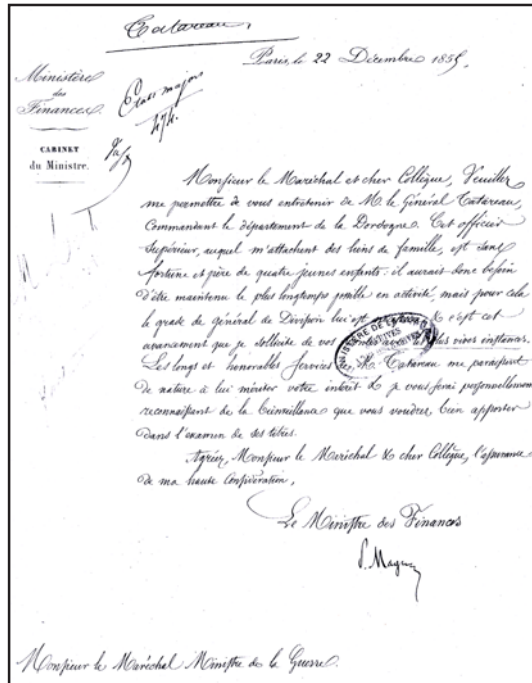 Tatareau
Paris, le 22 Décembre 185
Ministère
des
Finances
CABINET
du Ministre.
Etats majors
474
Monsieur le Maréchal et cher Collègue, Veuillez
me permettre de vous entretenir de M. le Général Tatareau,
Commandant le département de la Dordogne. Cet officier
Supérieur, auquel m'attachent des liens de famille, est sans
fortune et père de quatre jeunes enfants. il aurait donc besoin
d'être maintenu le plus longtemps possible en activité, mais pour cela
le grade de général de Division lui est & c'est cet
avancement que je sollicite de vos avec les plus vives instances.
Les longs et honorables services de M. Tatareau me paraissent
de nature à lui mériter votre intérêt & je vous serai personnellement
reconnaissant de la bienveillance que vous voudrez bien apporter
dans l'examen de ses titres.
Agréez, Monsieur le Maréchal & cher Collègue, l'assurance
de ma haute Considération,
Le Ministre des Finances
P. Magne
MINISTÈRE DE LA GUERRE
ARCHIVES
Monsieur le Maréchal Ministre de la Guerre.